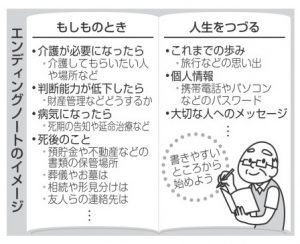 エンディングノートのイメージ
もしものとき
•介護が必要になったら
・介護してもらいたい人
や場所など
•判断能力が低下したら
・財産管理などどうするか
•病気になったら
・死期の告知や延命治療など
•死後のこと
・預貯金や不動産などの
書類の保管場所
・葬儀やお墓は
・相続や形見分けは
・友人らの連絡先は
人生をつづる
•これまでの歩み
・旅行などの思い出
•個人情報
・携帯電話やパソコン
などのパスワード
•大切な人へのメッセージ
⋮
書きやすい
ところから
始めよう